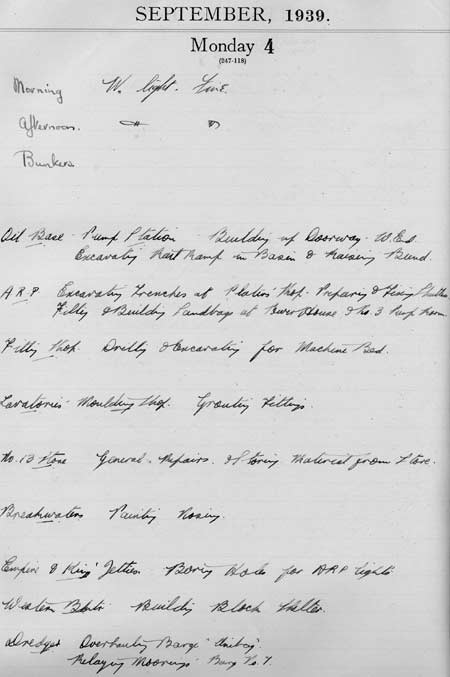 SEPTEMBER, 1939.
Monday 4
(247-118)
Morning W. light. Fine.
Afternoon. " "
Bunkers
Oil Base Pump Station Building up Doorway. W. End
Excavating Ramp in Basin & Raising Bund.
A R P Excavating Trenches at Platers' Shop. Preparing & Fixing Shutters.
Filling & Building Sandbags at Power House & No. 3 Pump Room.
Fitting Shop. Drilling & Excavating for Machine Bed.
Lavatories Moulding Shop. Grouting Fittings.
No. 13 Store General Repairs. & Storing Material from Store.
Breakwaters Painting Nosing.
Empire & King's Jetties. Boring Holes for ARP lights
Western Building Block Shelter.
Dredger Overhauling Barge
Relaying Moorings Buoy No. 7.